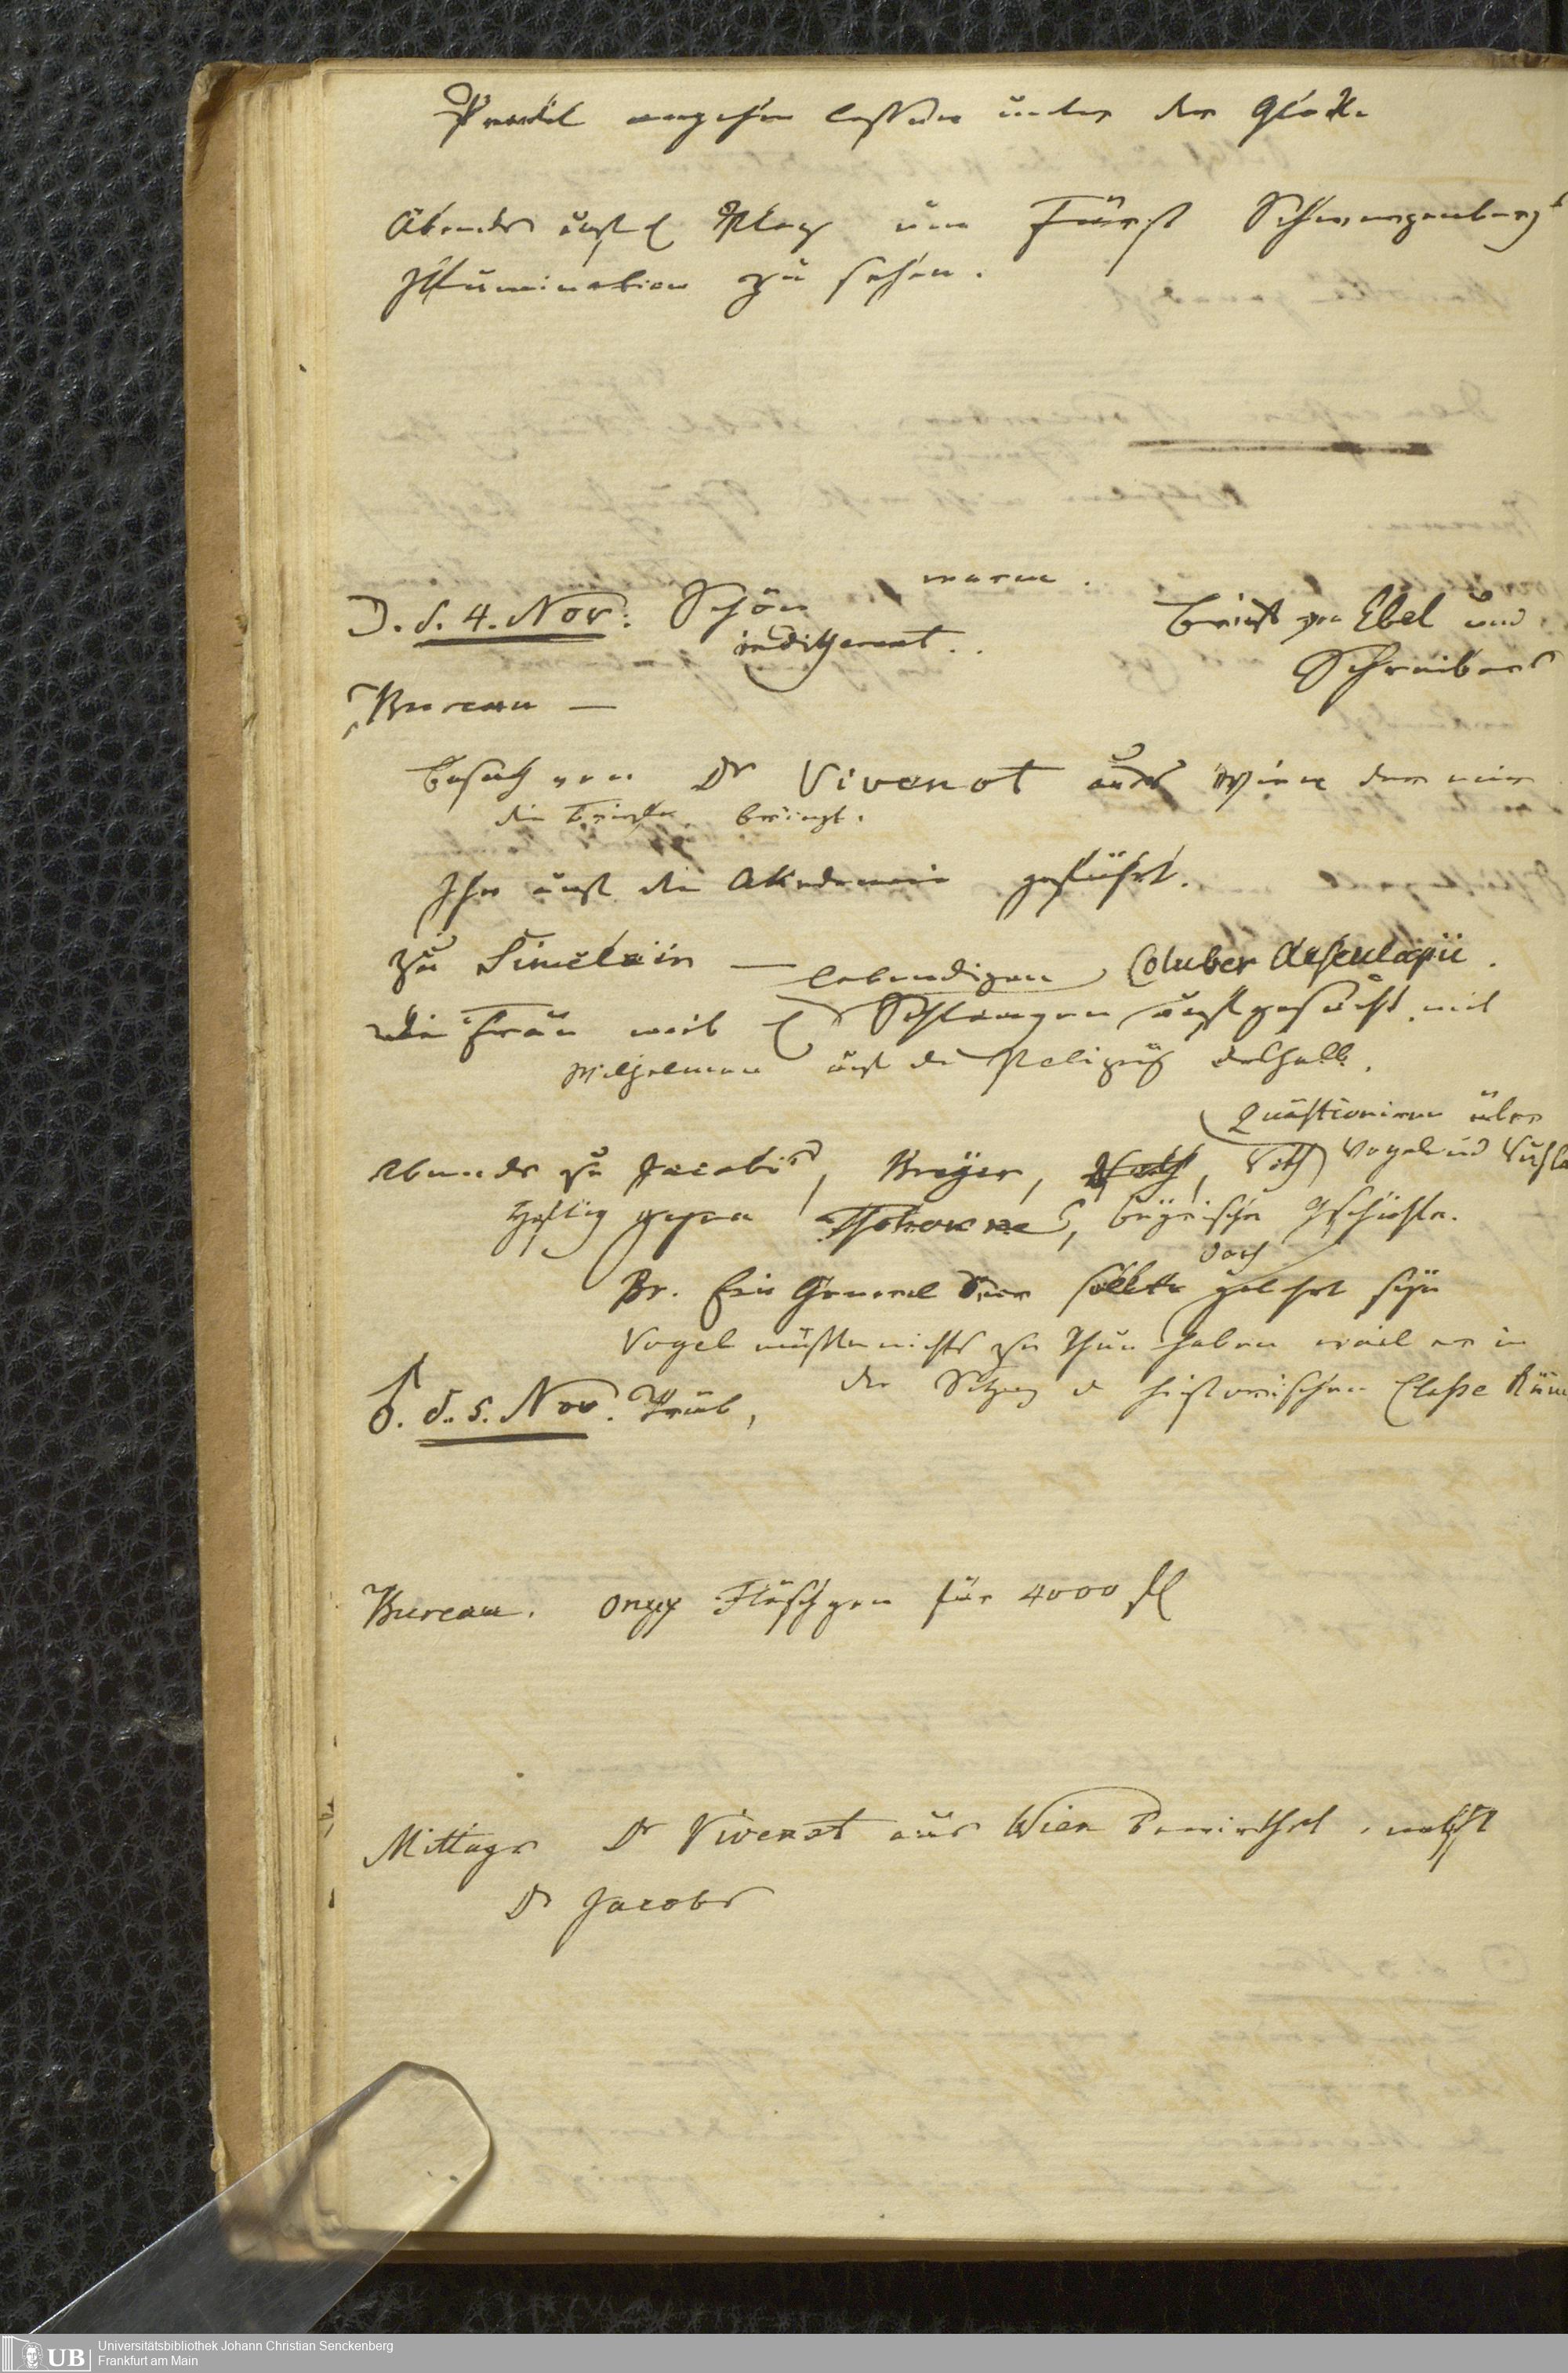 angehen lassen unter der Glocke
Abends auf Platz um Fürst Schwarzenbergs
Illumination zu sehen.
☽. d. 4. Nov: Schön warm.
indifferent..
Brief von Ebel und
Schreibers
Bureau —
Besuch von Dr Vivenot aus Wien der mir
die Briefe bringt.
Ihn auf die Akademie geführt.
zu Simelair — lebendigen Coluber Aesculapii.
die Frau mit Schlangen aufgesucht mit
Wilhelmen auf der Polizey deshalb.
Quästioniren über
Abends zu Jacobis, Breyer, Roth Vogel und
Heftig gegen, bayrische Geschichte.
Br. Ein General der sollte doch gelehrt seyn
Vogel müsste nichts zu thun haben weil er in
der Sitzung d historischen Classe
♂. d. 5. Nov. Trüb,
Bureau. Onyx Fläschgen für 4000 fl
Mittags Dr Vivenot aus Wien bewirthet, nebst
Dr Jacobs
UB Universitätsbibliothek Johann Christian Senckenberg
Frankfurt am Main